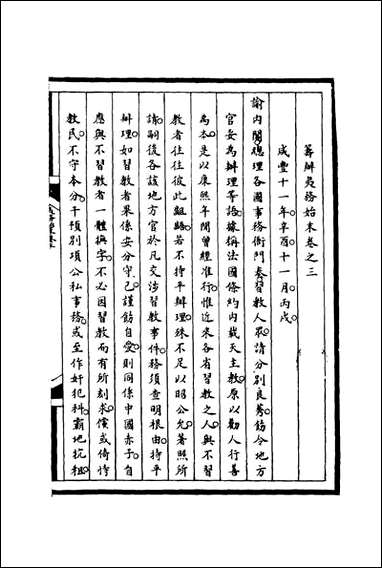 籌辦夷務始末卷之三
咸豐十一年辛酉十一月丙戌
諭內閣總理各國事務衙門奏習教人眾請分別良莠飭令地方
官妥為辦理等語據稱法國條約內載天主教原以勸人行善
為本是以康熙年間曾經准行惟近來各省習教之人與不習
教者往往彼此齟齬若不持平辦理殊不足以昭公允著照所
請嗣後各該地方官於凡交涉習教事件務須查明根由持平
辦理如習教者果係安分守己謹飭自受則同係中國赤子自
應與不習教者一體撫字不必因習教而有所刻求儻或倚恃
教民不守本分干預別項公私事務或至作奸犯科霸地抗租